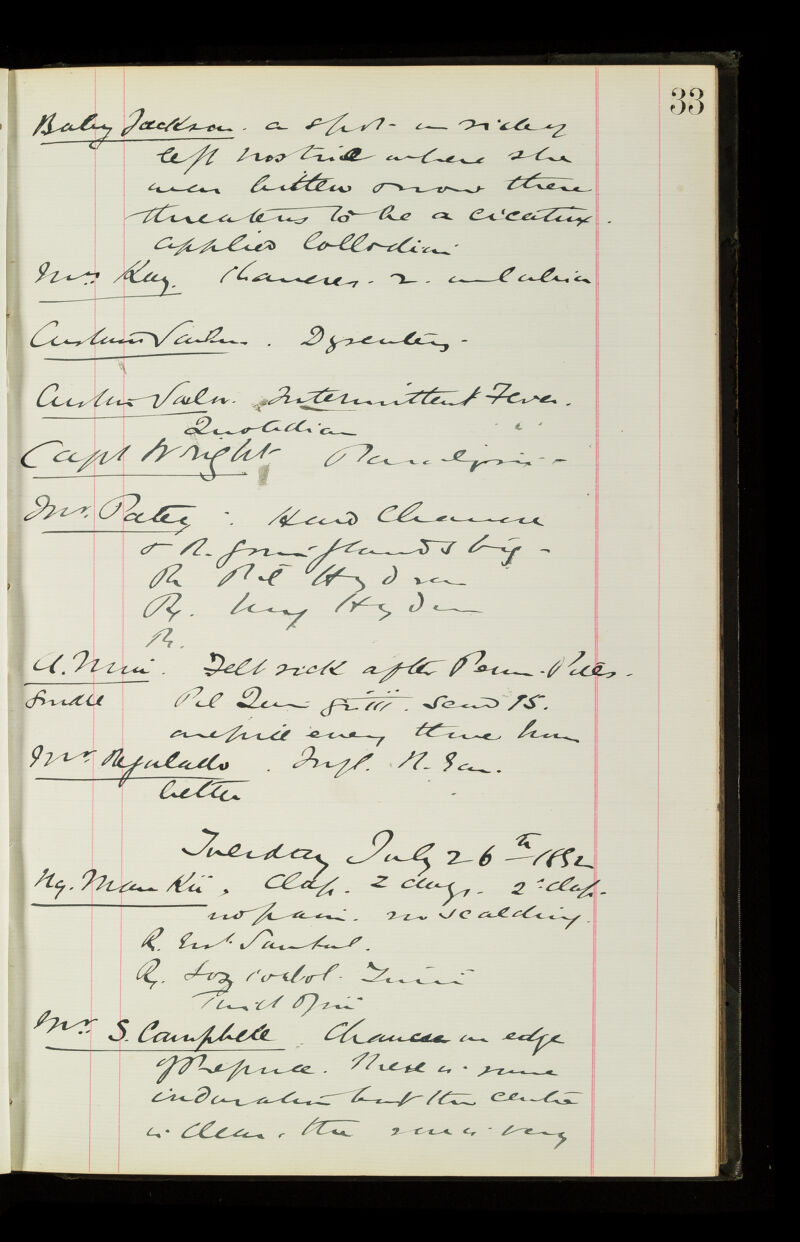 33
Baby Jackson. a spot on side of
left nostril where she
was bitten & now there
threatens to be a cicatrix.
applied Collodion
Mrs Kay. Chancres. 2. on labia
Customs . Dysentery.
Intermittent Fever.
Quotidian
Capt Wright Paralysis
Mr. Patey. Hard Chancre
& R. groin glands big
Rx Pil Hyd
Rx. Ung Hyd
Rx.
Felt sick after Perm. Pills.
Pil Quin gr iii. Send 15.
one pill every three hours
Mr. Regulado. Infl. R. Ear.
better
Tuesday July 26th 1892
Ng. Man Kii. Clap. 2 days. 2d clap.
no pain. no scalding.
Rx. Santal.
Rx.
Tinct Opii
Mr. S. Campbell. Chancre on edge
of Prepuce. There is some
induration but the centre
is clean. the sore is very